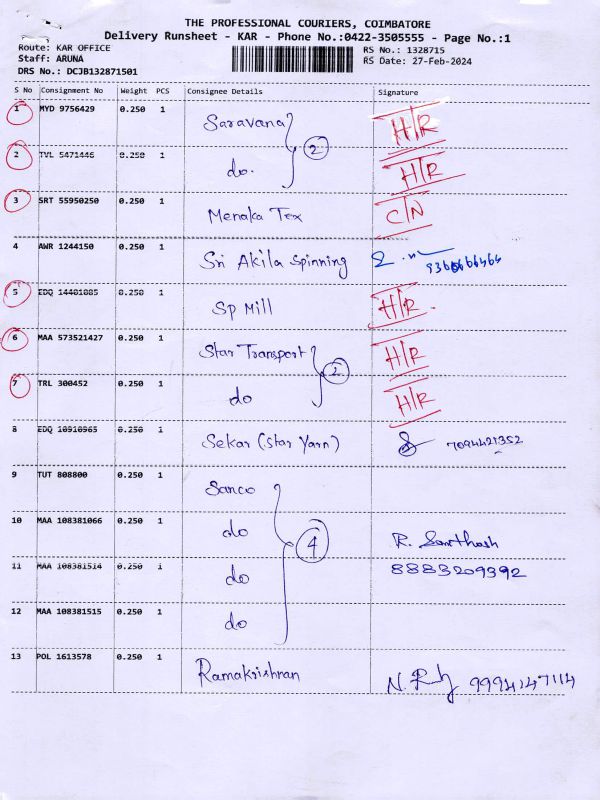 THE PROFESSIONAL COURIERS, COIMBATORE
Delivery Runsheet - KAR - Phone No.:0422-3505555 - Page No.:1
Route: KAR OFFICE RS No.: 1328715
Staff: ARUNA RS Date: 27-Feb-2024
DRS No.: DCJB132871501
S No Consignment No Weight PCS Consignee Details Signature
1 MYD 9756429 0.250 1 Saravana H/R
2 TVL 5471446 0.250 1 do. 2 H/R
3 SRT 55950250 0.250 1 Menaka Tex C/N
4 AWR 1244150 0.250 1 Sri Akila Spinning
5 EDQ 14401085 0.250 1 Sp Mill H/R
6 MAA 573521427 0.250 1 Star Transport H/R
7 TRL 300452 0.250 1 do 2 H/R
8 EDQ 10910965 0.250 1 Sekar (Star Yarn) 7094421352
9 TUT 808800 0.250 1 Sanco
10 MAA 108381066 0.250 1 do 4 R. Santhosh
11 MAA 108381514 0.250 1 do 8883209392
12 MAA 108381515 0.250 1 do
13 POL 1613578 0.250 1 Ramakrishnan 9994147114